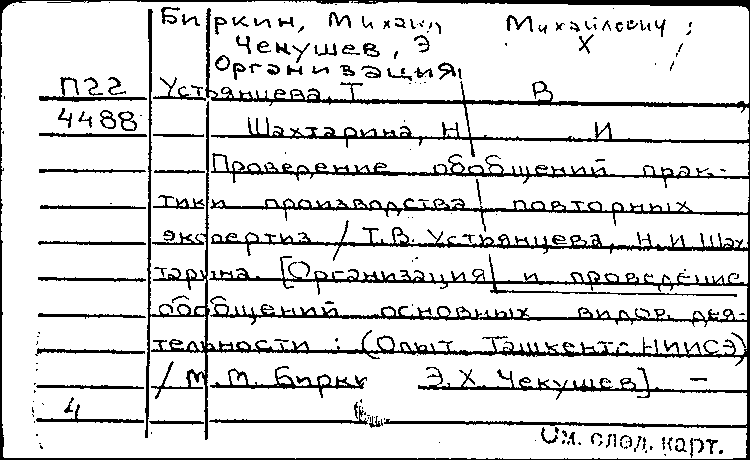 Биркин, Михаил Михайлович ;
Чекушев, Э Х
Организация
П22 Устьянцева, Т В
4488 Шахтарина, Н И
Проверение обобщений прак-
тики производства повторных
экспертиз / Т.В. Устьянцева, Н.И Шах
тарина. [Организация и проведение
обобщений основных видов дея-
тельности : (Опыт Ташкентс. НИИСЭ)
/ М.М. Бирки Э.Х. Чекушев]. —
4
См. след. карт.